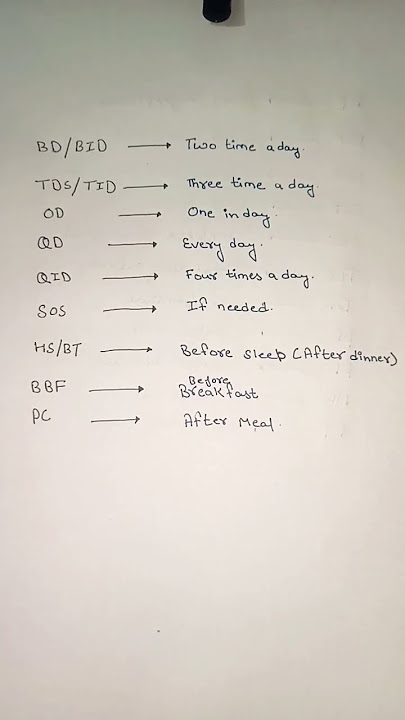 BD/BID → Two time a day.
TDS/TID → Three time a day.
OD → One in day.
QD → Every day.
QID → Four times a day.
SOS → If needed.
HS/BT → Before sleep (After dinner)
BBF → Before Breakfast
PC → After Meal.